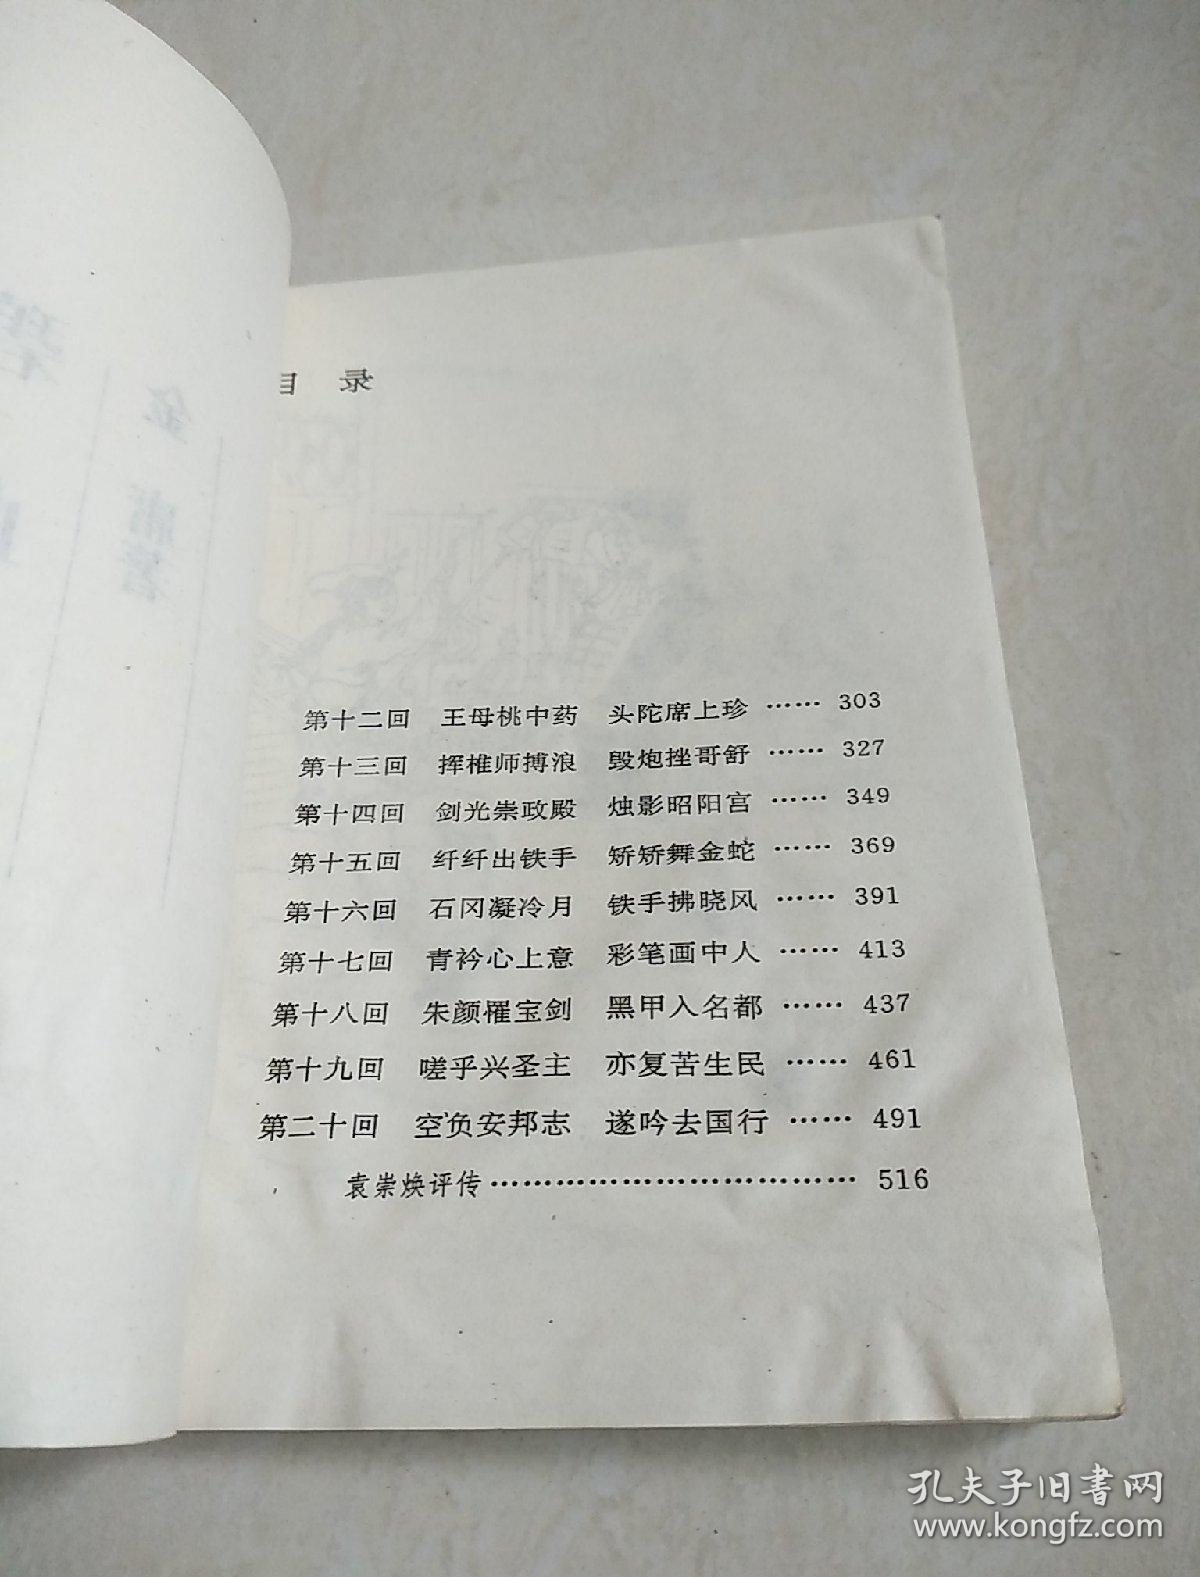 目 录
第十二回 王母桃中药 头陀席上珍 …… 303
第十三回 挥椎师搏浪 毁炮挫哥舒 …… 327
第十四回 剑光崇政殿 烛影昭阳宫 …… 349
第十五回 纤纤出铁手 矫矫舞金蛇 …… 369
第十六回 石冈凝冷月 铁手拂晓风 …… 391
第十七回 青衿心上意 彩笔画中人 …… 413
第十八回 朱颜罹宝剑 黑甲入名都 …… 437
第十九回 嗟乎兴圣主 亦复苦生民 …… 461
第二十回 空负安邦志 遂吟去国行 …… 491
袁崇焕评传 ……………………………… 516
孔夫子旧书网
www.kongfz.com